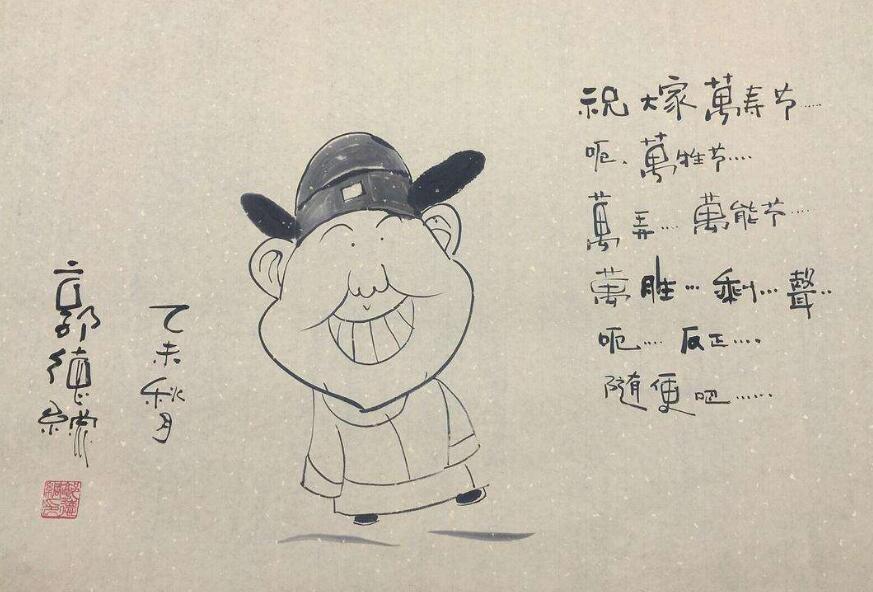 祝大家萬寿节……
呃、萬牲节….
萬弄…. 萬能节….
萬胜… 剩…. 聲..
呃…. 反正….
隨便吧……
乙未秋月
郭德綱